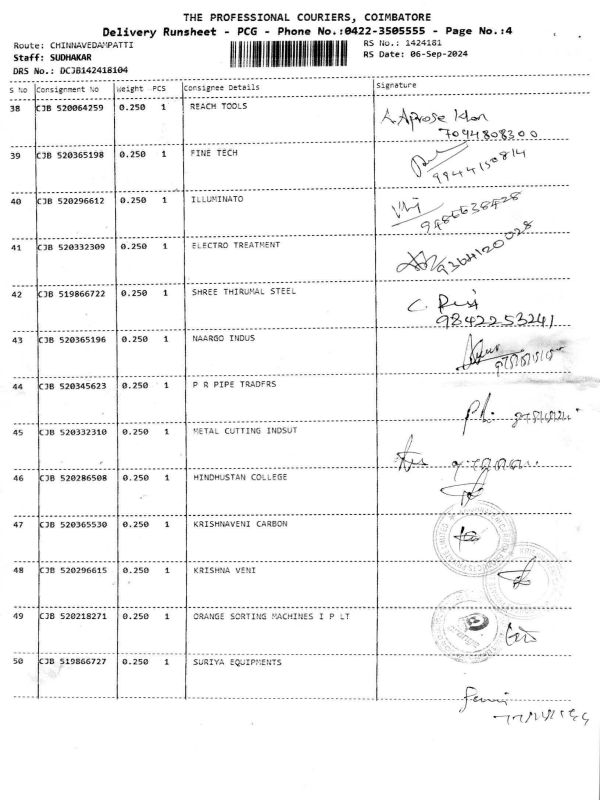 THE PROFESSIONAL COURIERS, COIMBATORE
Delivery Runsheet - PCG - Phone No.:0422-3505555 - Page No.:4
Route: CHINNAVEDAMPATTI
RS No.: 1424181
Staff: SUDHAKAR
RS Date: 06-Sep-2024
DRS No.: DCJB142418104
S No Consignment No Weight PCS Consignee Details Signature
38 CJB 520064259 0.250 1 REACH TOOLS
7094808300
39 CJB 520365198 0.250 1 FINE TECH
9944150814
40 CJB 520296612 0.250 1 ILLUMINATO
41 CJB 520332309 0.250 1 ELECTRO TREATMENT
42 CJB 519866722 0.250 1 SHREE THIRUMAL STEEL
9842253241
43 CJB 520365196 0.250 1 NAARGO INDUS
44 CJB 520345623 0.250 1 P R PIPE TRADERS
45 CJB 520332310 0.250 1 METAL CUTTING INDSUT
46 CJB 520286508 0.250 1 HINDHUSTAN COLLEGE
47 CJB 520365530 0.250 1 KRISHNAVENI CARBON
48 CJB 520296615 0.250 1 KRISHNA VENI
49 CJB 520218271 0.250 1 ORANGE SORTING MACHINES I P LT
50 CJB 519866727 0.250 1 SURIYA EQUIPMENTS